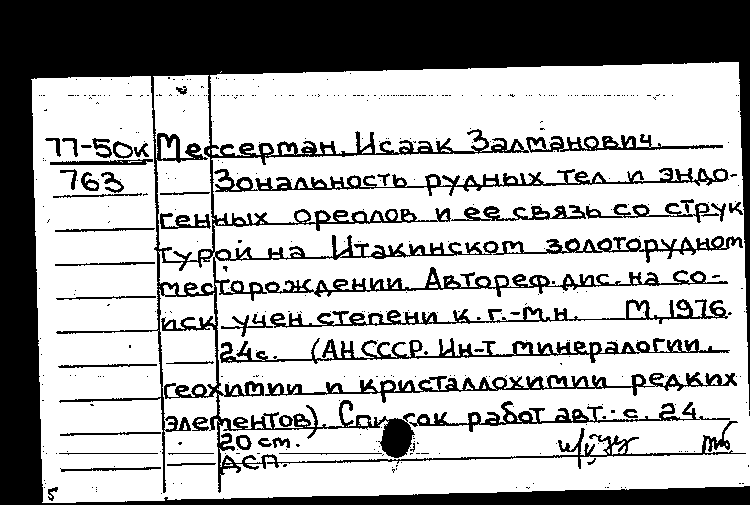 77-50к Мессерман, Исаак Залманович.
763 Зональность рудных тел и эндо-
генных ореолов и ее связь со струк
турой на Итакинском золоторудном
месторождении. Автореф. дис. на со-
иск учен. степени к. г.-м.н. М., 1976.
24с. (АН СССР. Ин-т минералогии,
геохимии и кристаллохимии редких
элементов). Список работ авт.: с. 24.
20 см.
ДСП.
5